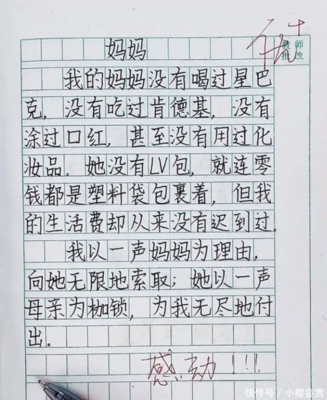 妈妈
我的妈妈没有喝过星巴
克，没有吃过肯德基，没有
涂过口红，甚至没有用过化
妆品。她没有LV包，就连零
钱都是塑料袋包裹着，但我
的生活费却从来没有迟到过。
我以一声妈妈为理由，
向她无限地索取；她以一声
母亲为枷锁，为我无尽地付
出。
感动！！！
教师
批改
快传号／小樱鉴赏